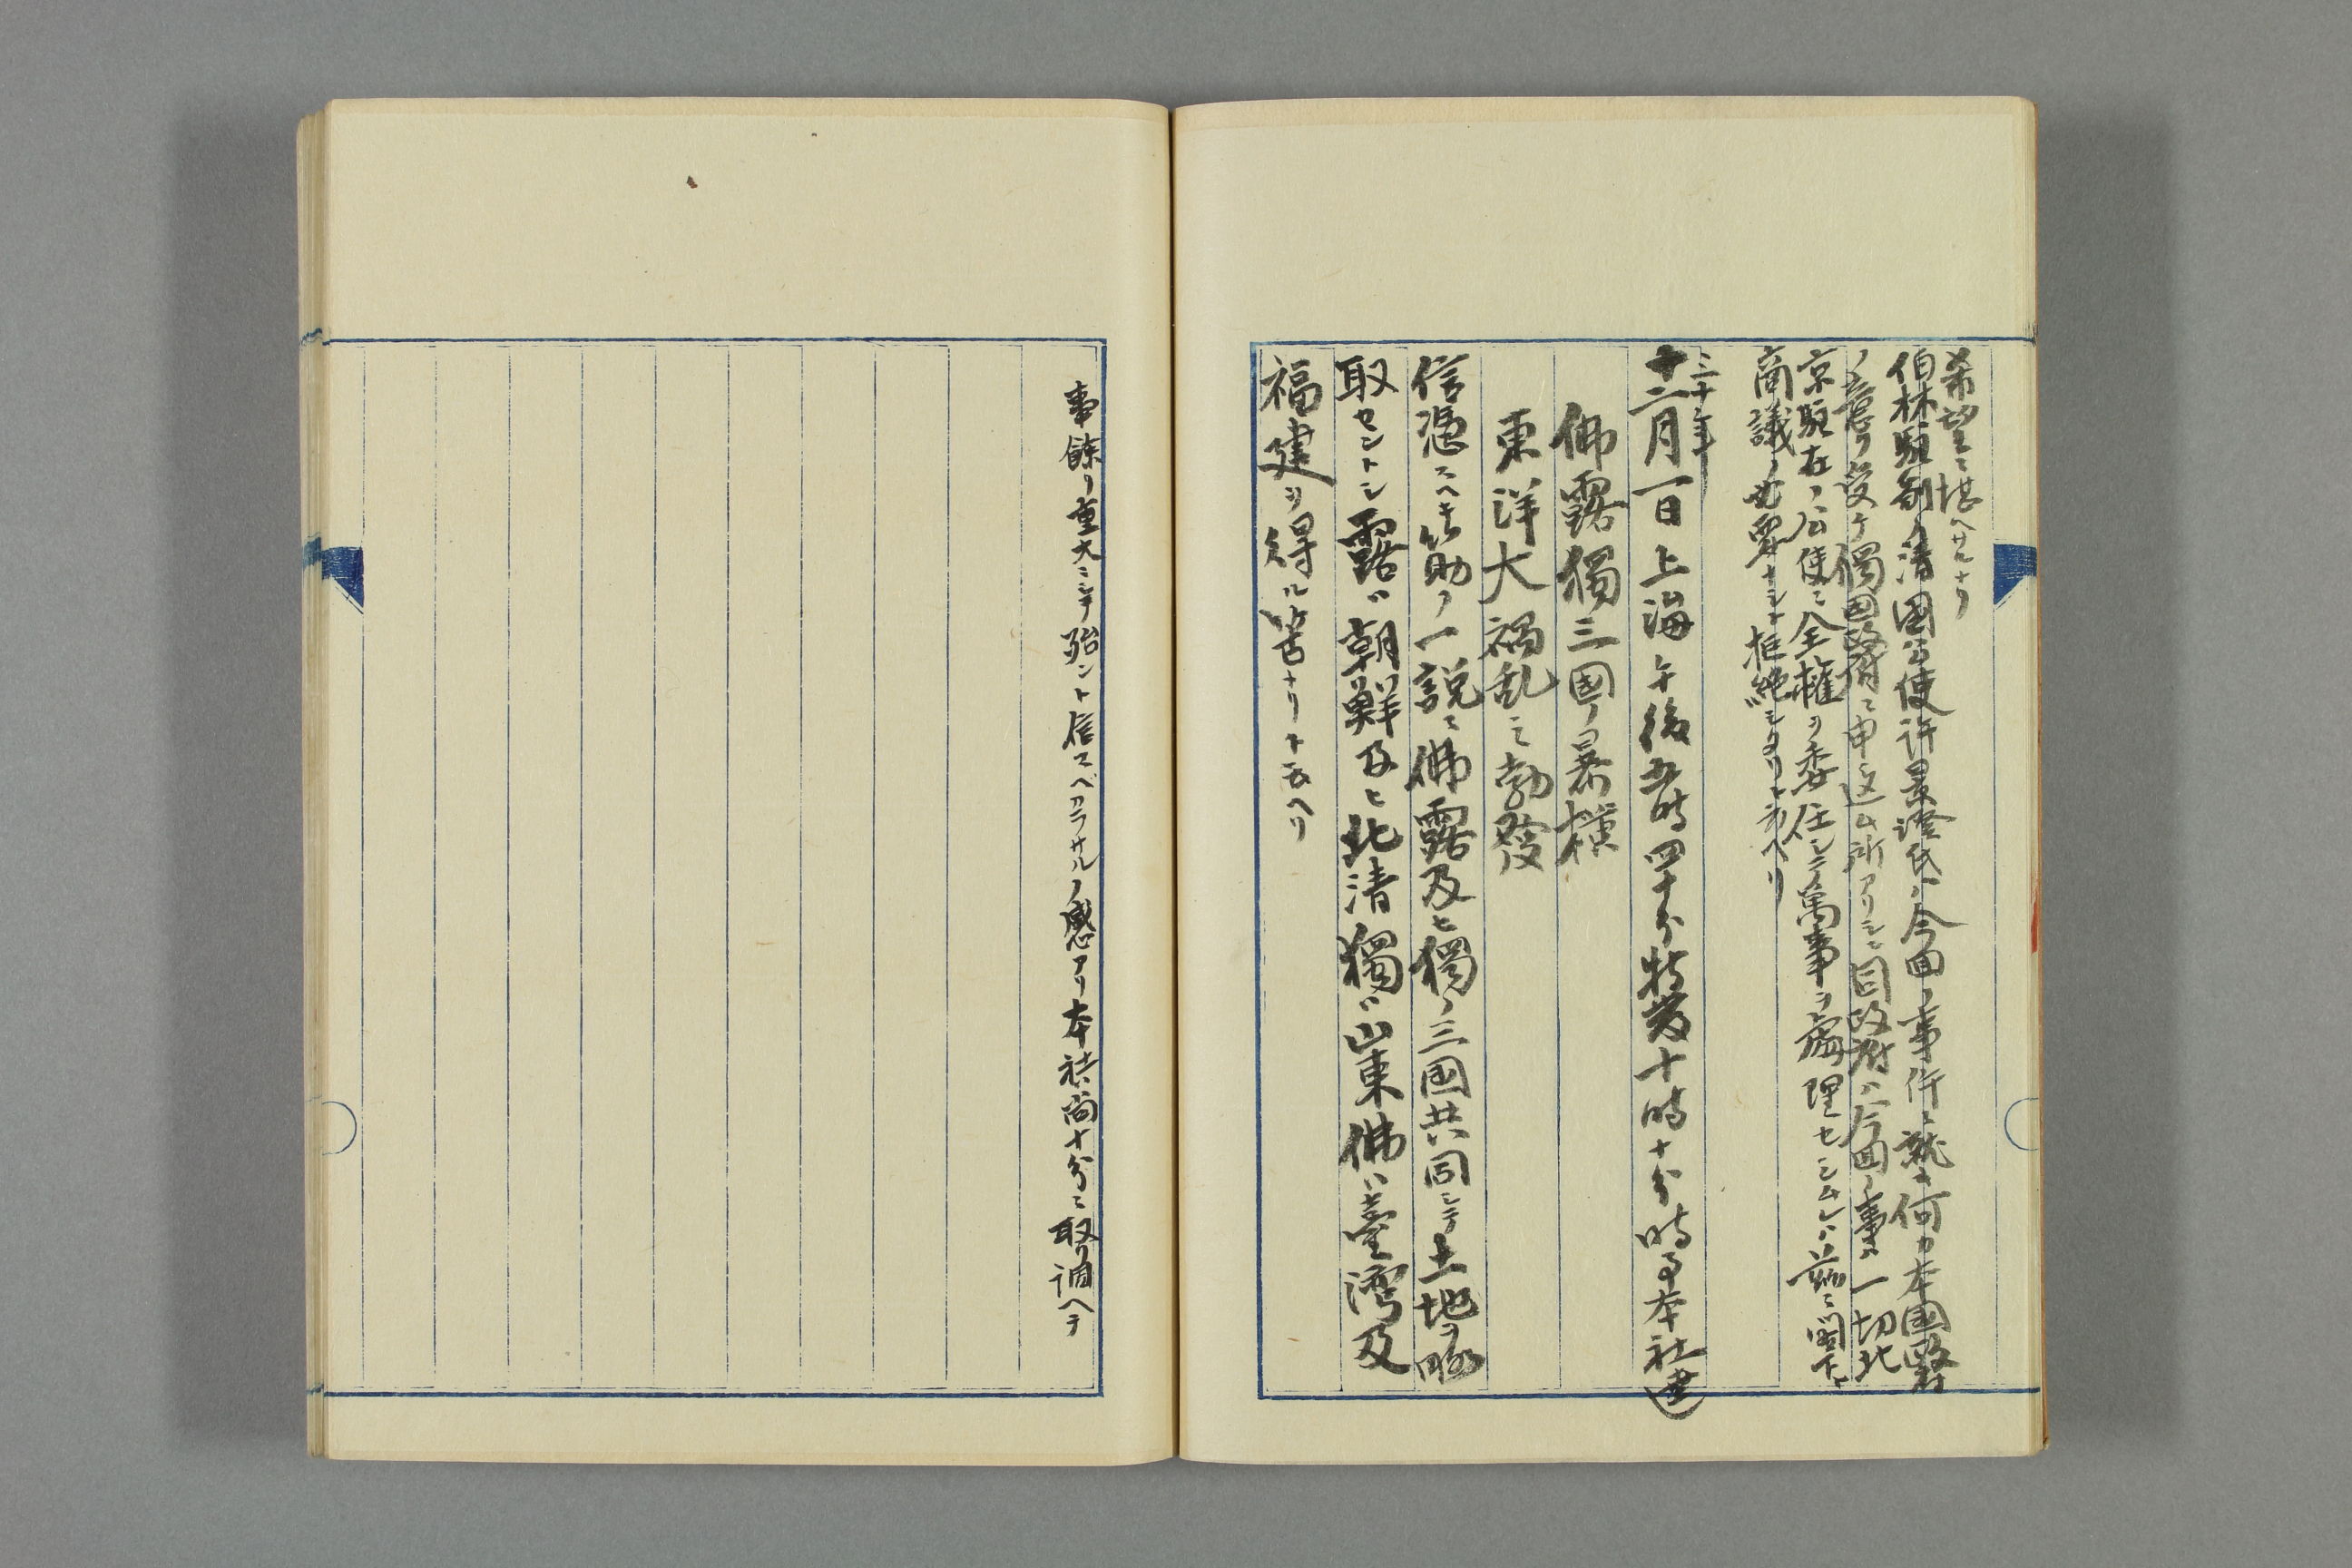 希望ニ堪ヘサルナリ
伯林駐劄ノ清国公使許景澄氏ハ今回ノ事件ニ就キ何カ本国政府
ノ意ヲ受ケ獨国政府ニ申込ム所アリシニ同政府ハ今回ノ事ハ一切北
京駐在ノ公使ニ全権ヲ委任シテ萬事ヲ處理セシムレハ茲ニ閣下ト
商議ノ必要ナシトテ拒絶シタリト云ヘリ
三十年
十二月一日上海午後五時四十分特發十時十分時事本社達
佛露獨三國ノ暴横
東洋大禍乱ノ勃發
信憑スヘキ筋ノ一説ニ佛露及ヒ獨ノ三国共同シテ土地ヲ略
取セントシ露ハ朝鮮及ヒ北清獨ハ山東佛ハ臺湾及
福建ヲ得ル筈ナリト云ヘリ
事餘リ重大ニシテ殆ント信スベカラサルノ感アリ本社尚十分ニ取リ調ヘテ